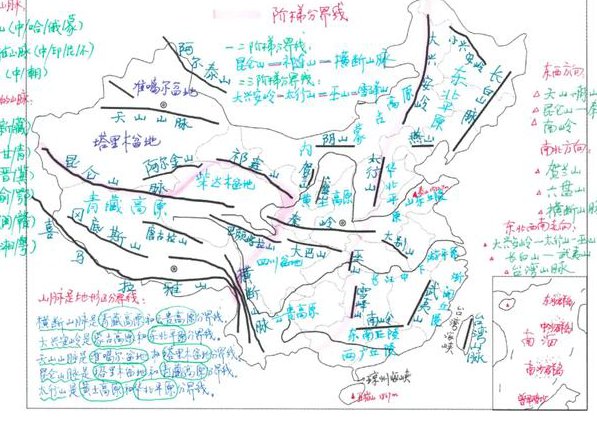 阶梯分界线
一二阶梯分界线:
昆仑山—祁连山—横断山脉
二三阶梯分界线:
大兴安岭—太行山—巫山—雪峰山
山脉
(中/哈/俄/蒙
山脉(中/印/尼/不
(中/朝)
阿尔泰山
准噶尔盆地
天山山脉
塔里木盆地
昆仑山脉
阿尔金山
祁连山
柴达木盆地
青藏高原
冈底斯山
唐古拉山
巴颜喀拉山
喜马拉雅山
横断山脉
四川盆地
秦岭
大兴安岭
小兴安岭
长白山脉
东北平原
内蒙古高原
阴山
燕山
贺兰山
太行山
黄土高原
华北平原
山东丘陵
大别山
巫山
长江中下游平原
雪峰山
武夷山
南岭
东南丘陵
两广丘陵
云贵高原
台湾海峡
台湾山脉
琼州海峡
东西方向:
天山—阴山
昆仑山—秦
南岭
南北方向:
贺兰山
六盘山
横断山脉
东北西南走向:
大兴安岭—太行山—巫山
长白山—武夷山
台湾山脉
南海
东沙群岛
中沙群岛
南沙群岛
山脉是地形区分界线:
横断山脉是青藏高原和云贵高原分界线.
大兴安岭是内蒙古高原和东北平原分界线.
天山山脉是准噶尔盆地和塔里木盆地分界线.
昆仑山脉是塔里木盆地和青藏高原分界线.
太行山是黄土高原和华北平原分界线.